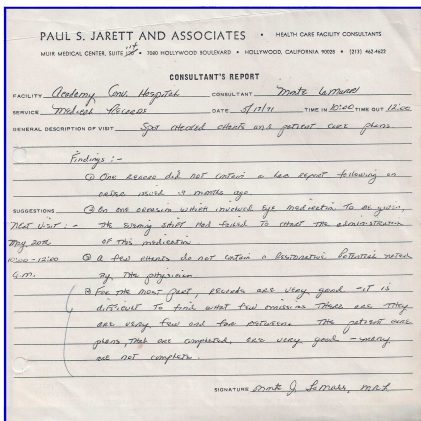 PAUL S. JARETT AND ASSOCIATES • HEALTH CARE FACILITY CONSULTANTS
MUIR MEDICAL CENTER, SUITE 120 • 7080 HOLLYWOOD BOULEVARD • HOLLYWOOD, CALIFORNIA 90028 • (213) 462-4622
CONSULTANT'S REPORT
FACILITY Academy Conv. Hospital CONSULTANT
SERVICE Medical Records DATE 5/12/71 TIME IN 10:00 TIME OUT 12:00
GENERAL DESCRIPTION OF VISIT Spot checked charts and patient care plans.
Findings :-
① One record did not contain a lab report following an
order issued months ago
SUGGESTIONS ② On one occasion which involved Eye medication to be given,
Next Visit :- the Evening shift had failed to chart the administration
May 20th of this medication
10:00 - 12:00 ③ A few charts do not contain a Restorative Potential noted
A.M. by the physician
For the most part, records are very good - it is
difficult to find what few omissions there are. They
are very few and far between. The patient care
plans, that are completed, are very good - many
are not complete.
SIGNATURE